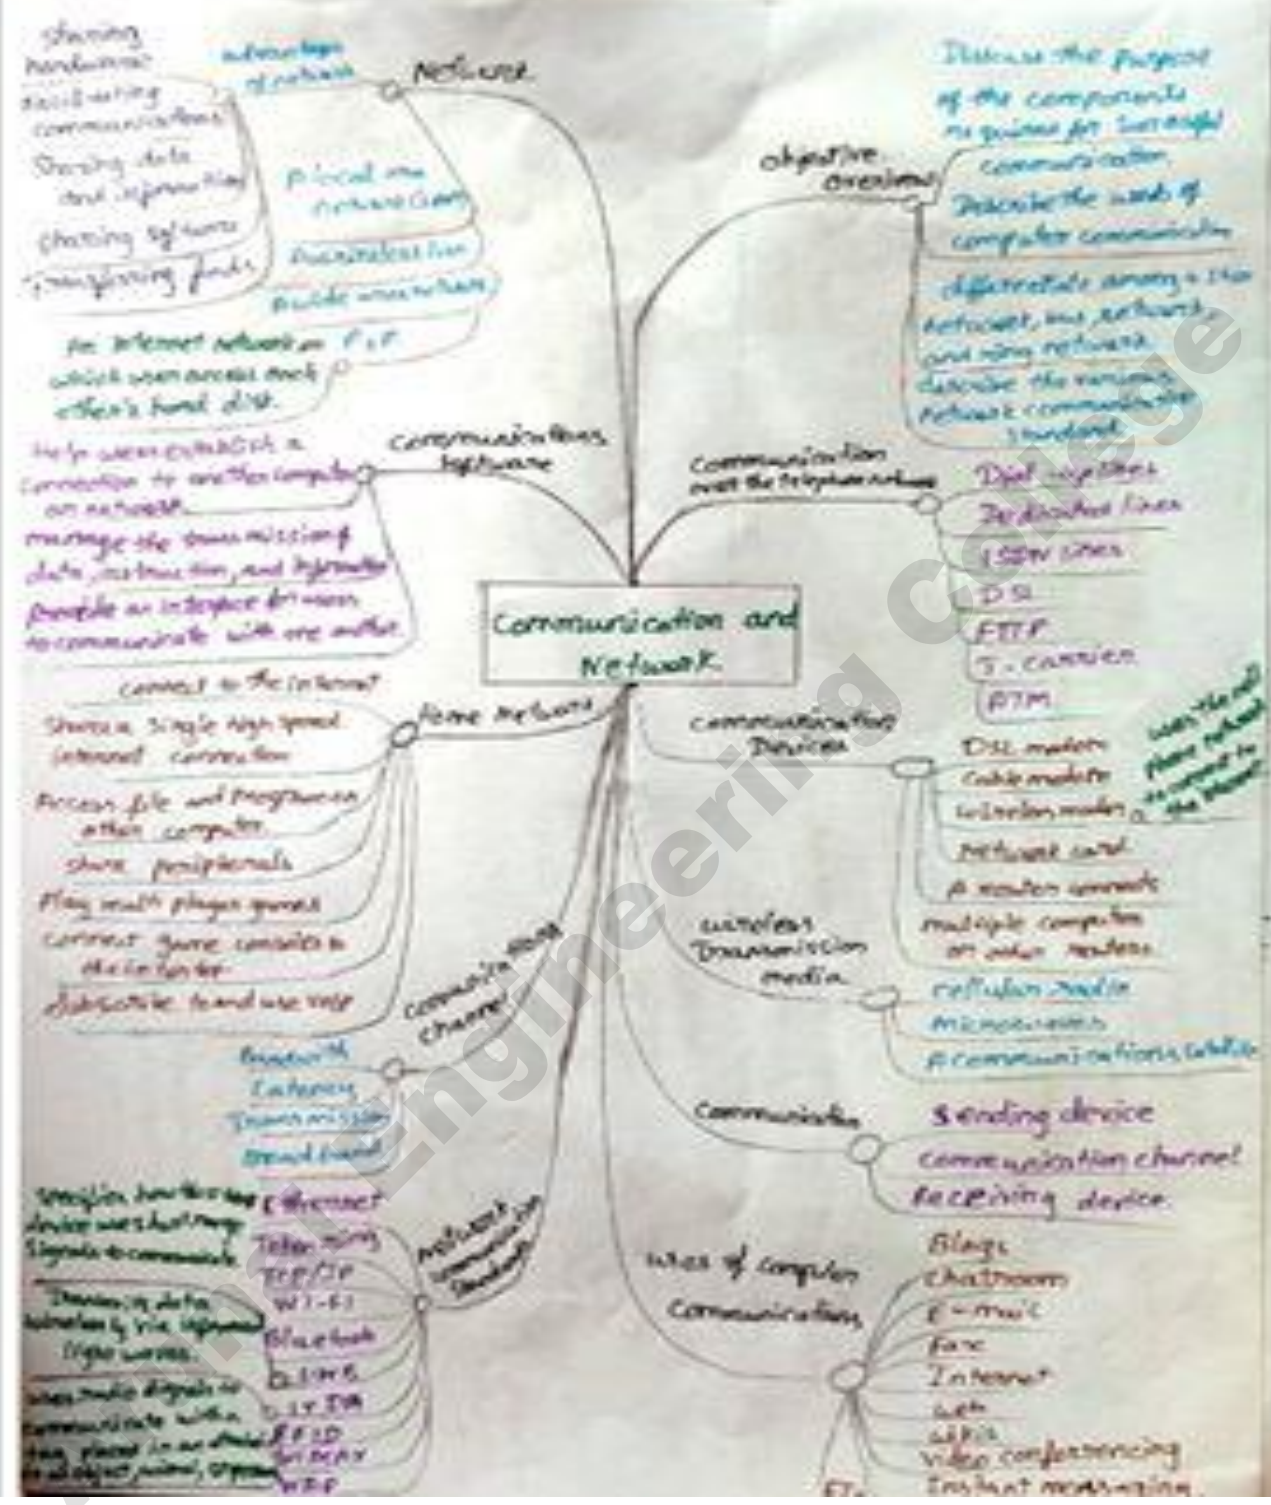 Communication and
Network
Network
advantages
of network
sharing
hardware
facilitating
communications
Sharing data
and information
sharing software
Transferring funds
network (LAN)
A wireless LAN
A wide area network
P2P
An internet network on
which users access each
other's hard disk.
communications
software
Help users establish a
connection to another computer
on network
manage the transmission of
data, instruction, and information
Provide an interface for users
to communicate with one another
Home Network
connect to the internet
Share a single high speed
internet connection
Access file and program on
other computer
share peripherals
Play multi player games
connect game consoles to
the internet
Subscribe to and use VoIP
communications
channel
Latency
Transmission
Broadband
Network
communication
standards
Ethernet
Token ring
TCP/IP
Wi-Fi
Bluetooth
UWB
IrDA
RFID
WiMAX
WAP
Specifies how the
device uses
signals to communicate
data
wirelessly via infrared
light waves.
uses radio signals to
communicate with a
tag placed in an
objective
overview
Discuss the purpose
of the components
required for successful
communication
Describe the uses of
computer communication
differentiate among a star
network, bus network,
and ring network
describe the various
network communication
standard
communication
over the telephone network
Dedicated lines
ISDN lines
DSL
FTTP
T-carrier
ATM
communication
Devices
DSL modem
Cable modem
wireless modem
uses the cell
phone network
to connect to
the Internet
Network card
A router connects
multiple computers
or other routers
wireless
Transmission
media
cellular radio
microwaves
A communications satellite
Communication
Sending device
communication channel
Receiving device
uses of computer
communications
Blogs
chatroom
E-mail
Fax
Internet
web
wikis
video conferencing
Instant messaging
Engineering College